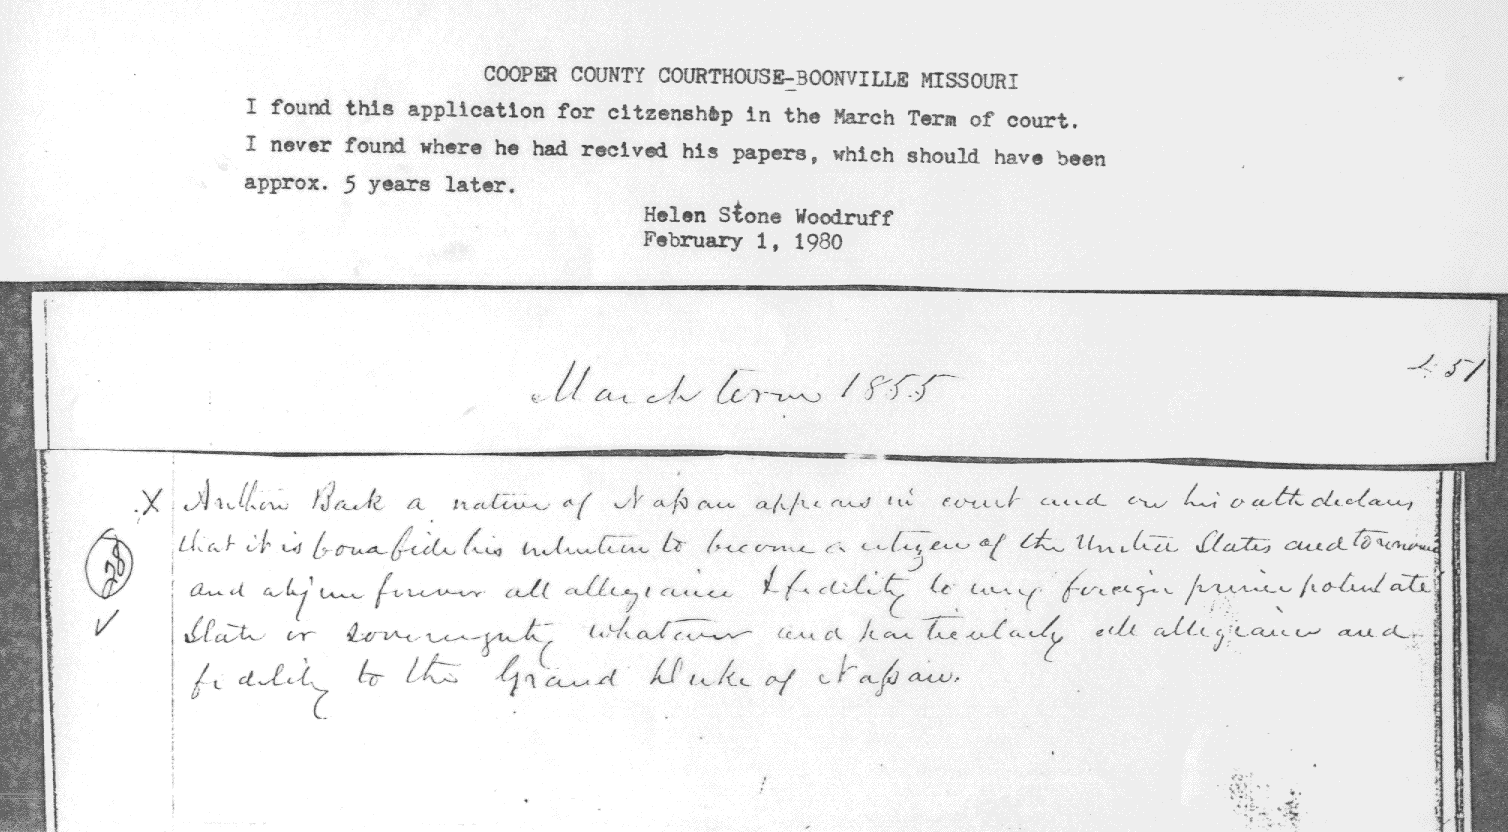 COOPER COUNTY COURTHOUSE-BOONVILLE MISSOURI
I found this application for citzenship in the March Term of court.
I never found where he had recived his papers, which should have been
approx. 5 years later.
Helen Stone Woodruff
February 1, 1980
451
March term 1855
X Back a native of Nassau appears in court and on his oath declares
that it is bona fide his intention to become a citizen of the United States and to renounce
228
and abjure forever all allegiance & fidelity to any foreign prince potentate
✓
State or sovereignty whatever and particularly all allegiance and
fidelity to the Grand Duke of Nassau.